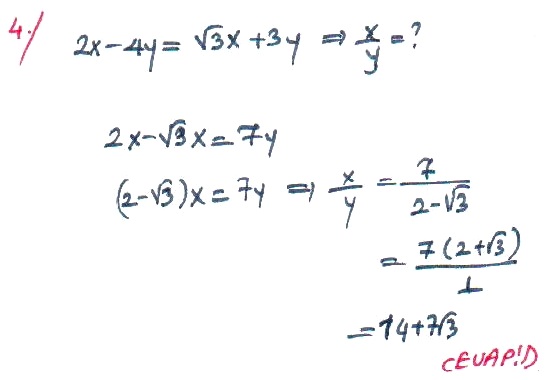 4./ 2x-4y= √3x+3y ⇒ x/y = ?
2x-√3x=7y
(2-√3)x=7y ⇒ x/y = 7/(2-√3)
= 7(2+√3)/1
=14+7√3
CEVAP:D